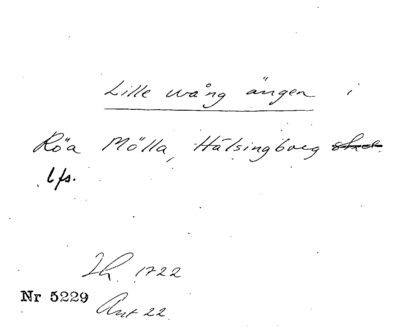 Lille wång ängen i
Röa Mölla, Hälsingborg
lfs.
Lh. 1722
Nr 5229
Ant 22